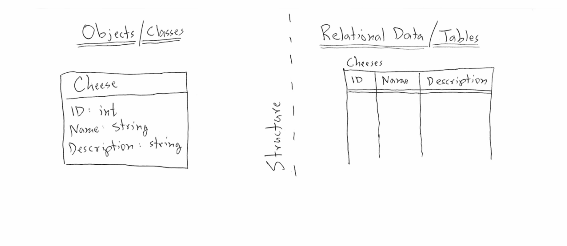 Objects/Classes
Cheese
ID: int
Name: String
Description: string
Structure
Relational Data/Tables
Cheeses
ID Name Description